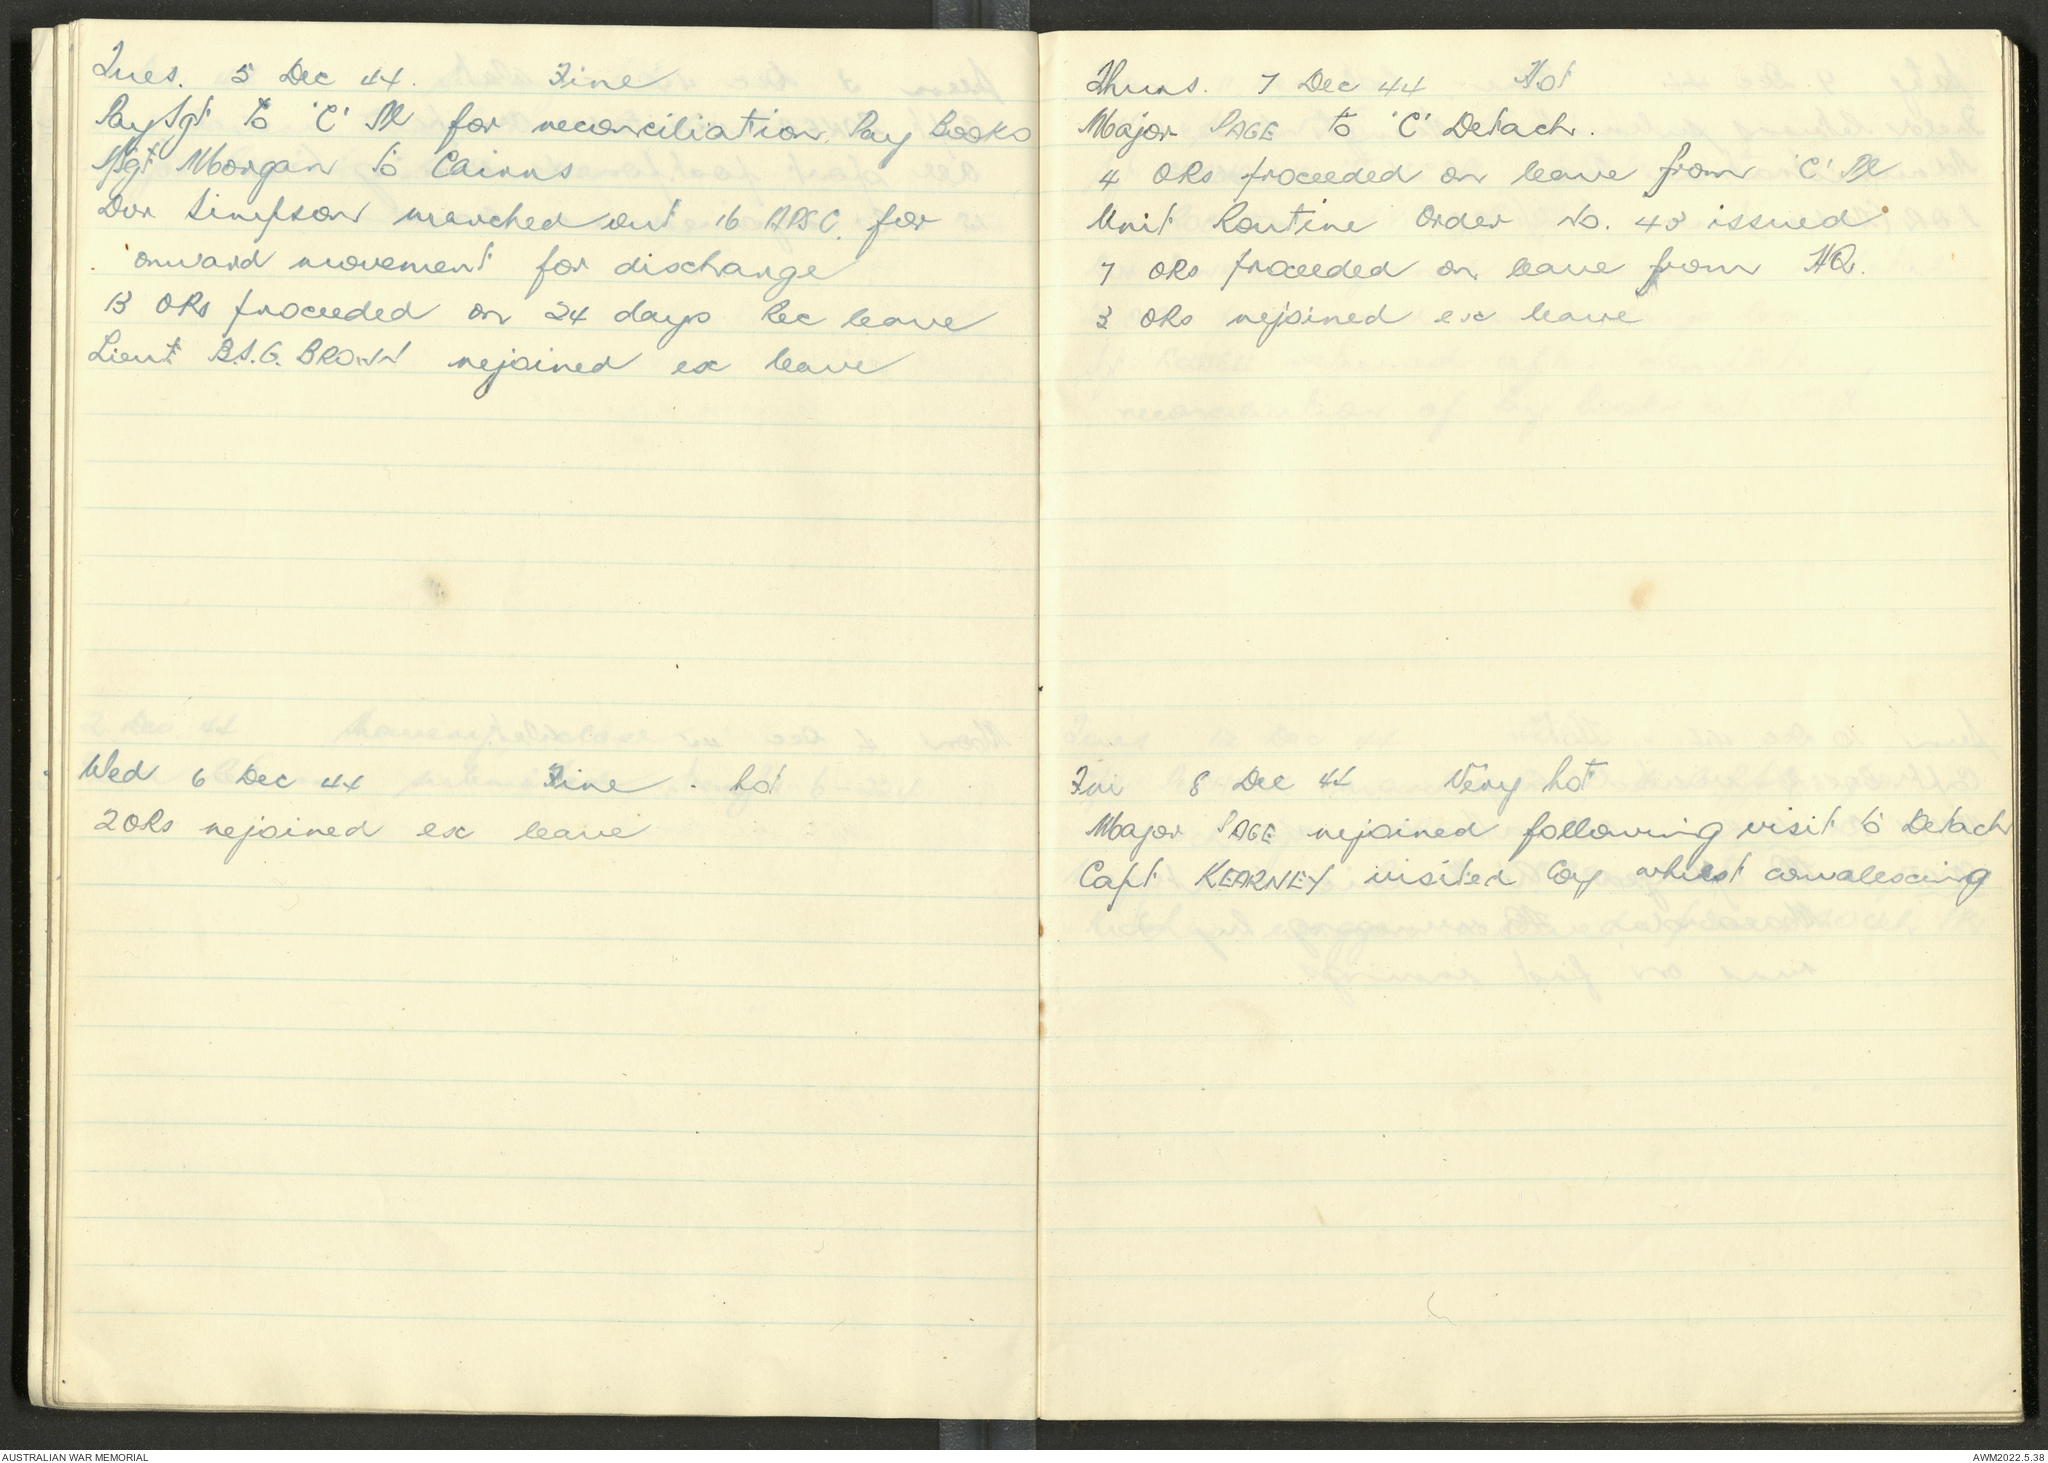 Tues. 5 Dec 44. Fine
Pay Sgt to 'C' Pl for reconciliation Pay Books
A/Sgt Morgan to Cairns
Dvr Simpson marched out 16 APSC. for
onward movement for discharge
13 ORs proceeded on 24 days Rec leave
Lieut B.S.G. BROWN rejoined ex leave
Wed 6 Dec 44 Fine - hot
2 ORs rejoined ex leave
Thurs. 7 Dec 44 Hot
Major PAGE to 'C' Detach.
4 ORs proceeded on leave from 'C' Pl
Unit Routine Order No. 43 issued
7 ORs proceeded on leave from HQ.
3 ORs rejoined ex leave
Fri 8 Dec 44 Very hot
Major PAGE rejoined following visit to Detach
Capt KEARNEY visited Coy whilst convalescing
AUSTRALIAN WAR MEMORIAL
AWM2022.5.38